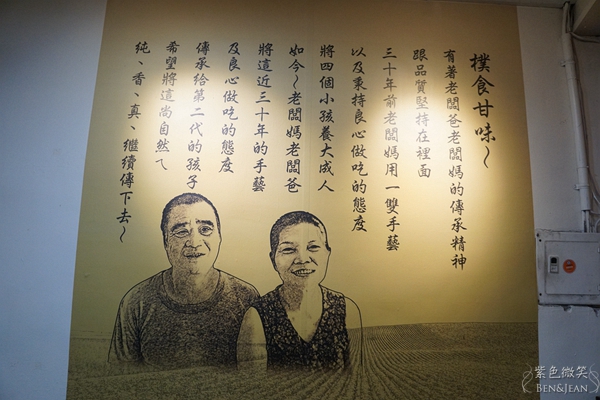 樸食甘味～
有著老闆爸老闆媽的傳承精神
跟品質堅持在裡面
三十年前老闆媽用一雙手藝
以及秉持良心做吃的態度
將四個小孩養大成人
如今～老闆媽老闆爸
將這近三十年的手藝
及良心做吃的態度
傳承給第二代的孩子
希望將這尚自然ㄟ
純、香、真、繼續傳下去～
紫色微笑
BEN&JEAN